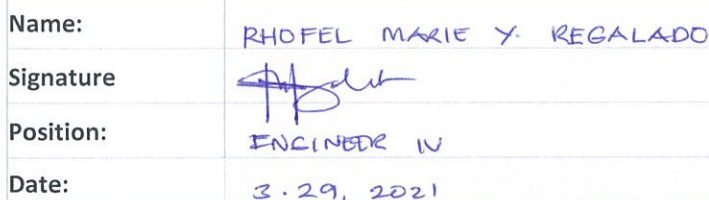 Name: RHOFEL MARIE Y. REGALADO
Signature
Position: ENGINEER IV
Date: 3.29, 2021